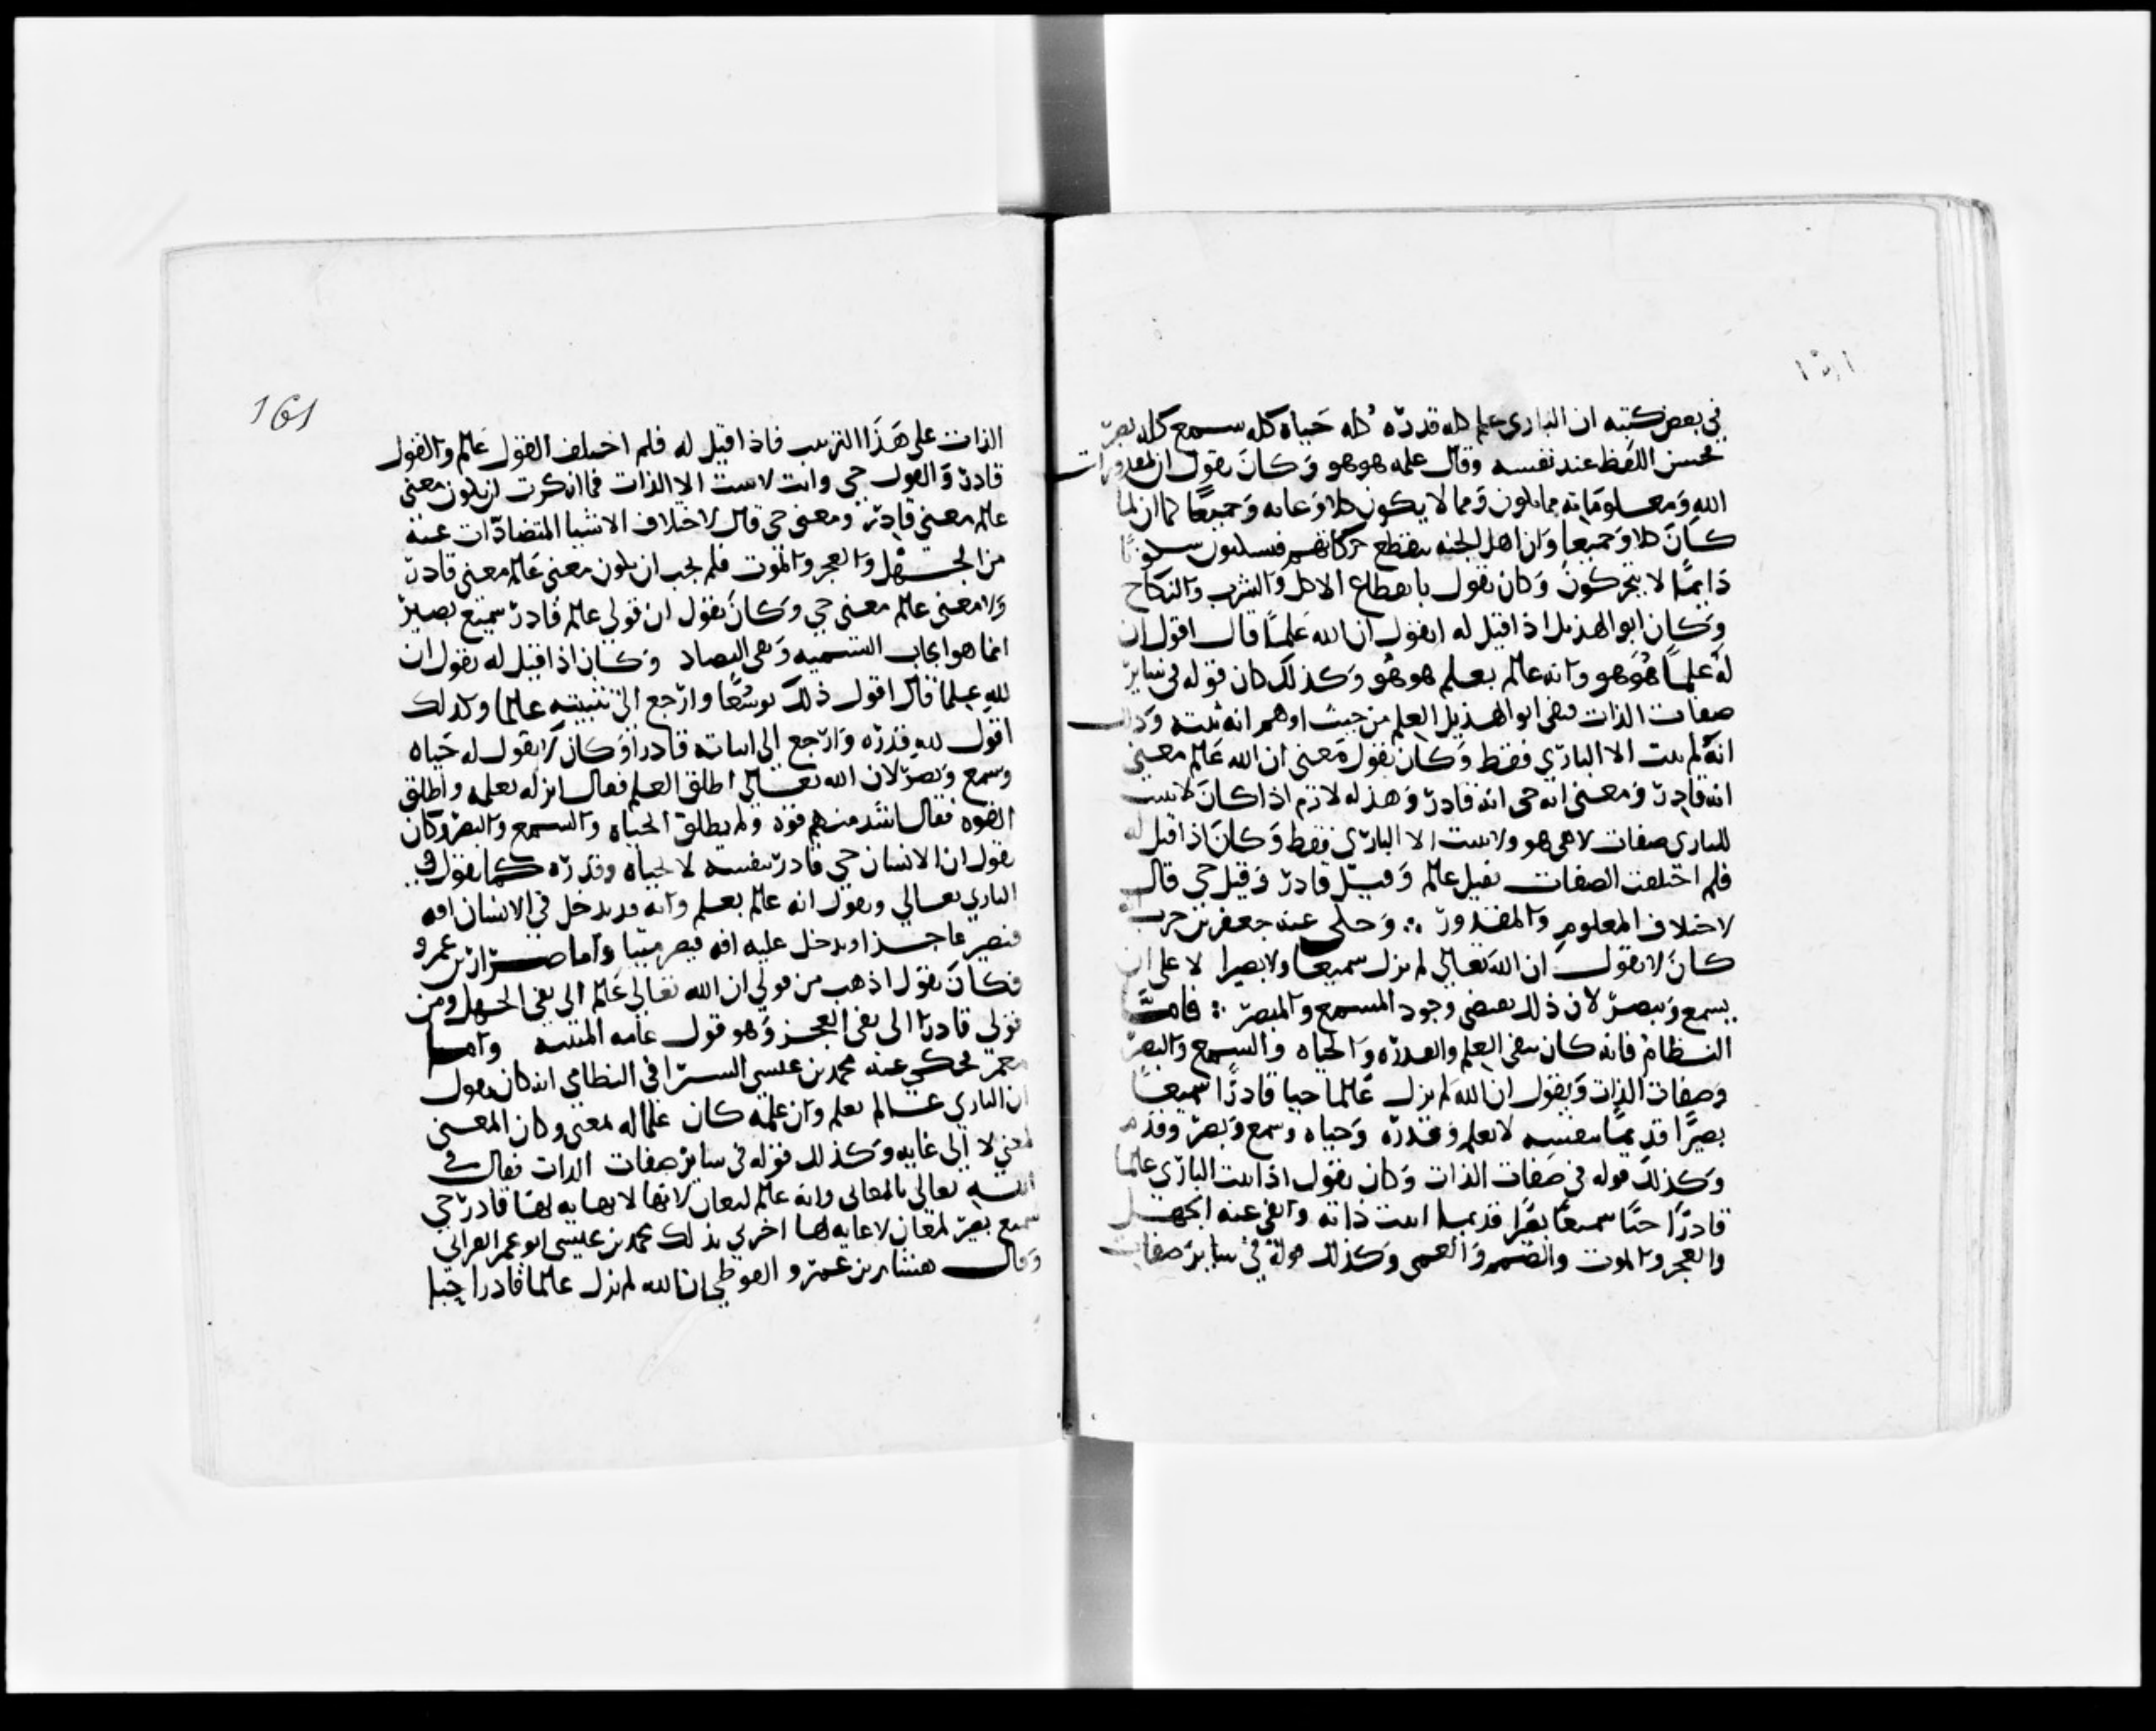 في بعض كتبه ان الباري علم كله قدرة كله حياة كله سمع كله بصر
فحسن اللفظ عند نفسه وقال علمه هو هو وكان يقول ان لمقدورات
الله ومعلوماته مما يكون ومما لا يكون كلا وغايه وجميعا كما ان لما
كان كلا وجميعا وان اهل الجنه تنقطع حركاتهم فيسكنون سكونا
دايما لا يتحركون وكان يقول بانقطاع الاكل والشرب والنكاح
وكان ابو الهذيل اذا قيل له اتقول ان لله علما قال اقول ان
له علما هو هو وانه عالم بعلم هو هو وكذلك كان قوله في ساير
صفات الذات فنفى ابو الهذيل العلم من حيث اوهم انه ثبته وذلك
انه لم يثبت الا الباري فقط وكان يقول معنى ان الله عالم معنى
انه قادر ومعنى انه حي انه قادر وهذا له لازم اذا كان لا يثبت
للباري صفات لا هي هو ولا يثبت الا الباري فقط وكان اذا قيل له
فلم اختلفت الصفات فقيل عالم وقيل قادر وقيل حي قال
لاختلاف المعلوم والمقدور ∴ وحكى عنه جعفر بن حرب انه
كان لا يقول ان الله تعالى لم يزل سميعا ولا بصيرا لا على ان
يسمع ويبصر لان ذلك يقتضي وجود المسمع والمبصر ∴ فاما
النظام فانه كان ينفي العلم والقدره والحياه والسمع والبصر
وصفات الذات ويقول ان الله لم يزل عالما حيا قادرا سميعا
بصيرا قديما بنفسه لا بعلم وقدره وحياه وسمع وبصر وقدم
وكذلك قوله في صفات الذات وكان يقول اذا اثبت الباري عالما
قادرا حيا سميعا بصيرا قديما اثبت ذاته وانفي عنه الجهل
والعجز والموت والصمم والعمى وكذلك قوله في ساير صفات
161
الذات على هذا الترتيب فاذا قيل له فلم اختلف القول عالم والقول
قادر والقول حي وانت لا تثبت الا الذات فما انكرت ان يكون معنى
عالم معنى قادر ومعنى حي قال لاختلاف الاشيا المتضادات عنه
من الجهل والعجز والموت فلم يجب ان يكون معنى عالم معنى قادر
ولا معنى عالم معنى حي وكان يقول ان قولي عالم قادر سميع بصير
انما هو ايجاب التسميه ونفي التضاد وكان اذا قيل له تقول ان
لله علما قال اقول ذلك توسعا وارجع الى تثبيته عالما وكذلك
اقول لله قدره وارجع الى اثباته قادرا وكان لا يقول له حياه
وسمع وبصر لان الله تعالى اطلق العلم فقال انزله بعلمه واطلق
القوه فقال اشد منهم قوه ولم يطلق الحياه والسمع والبصر وكان
يقول ان الانسان حي قادر بنفسه لا بحياه وقدره كما يقول في
الباري تعالى ويقول انه عالم بعلم وانه قد يدخل في الانسان افه
فيصير عاجزا ويدخل عليه افه فيصير ميتا واما ضرار بن عمرو
فكان يقول اذهب من قولي ان الله تعالى عالم الى نفي الجهل ومن
قولي قادر الى نفي العجز وهو قول عامه المثبته واما
معمر فحكي عنه محمد بن عيسى السيرافي النظامي انه كان يقول
ان الباري عالم بعلم وان علمه كان علما له لمعنى وكان المعنى
لمعنى لا الى غايه وكذلك قوله في ساير صفات الذات فقال في
الله تعالى بالمعاني وانه عالم لمعان لانها لا نهايه لها قادر حي
سميع بصير لمعان لا غايه لها اخبرني بذلك محمد بن عيسى ابو عمر الفراتي
وقال هشام بن عمرو الفوطي ان الله لم يزل عالما قادرا حيا